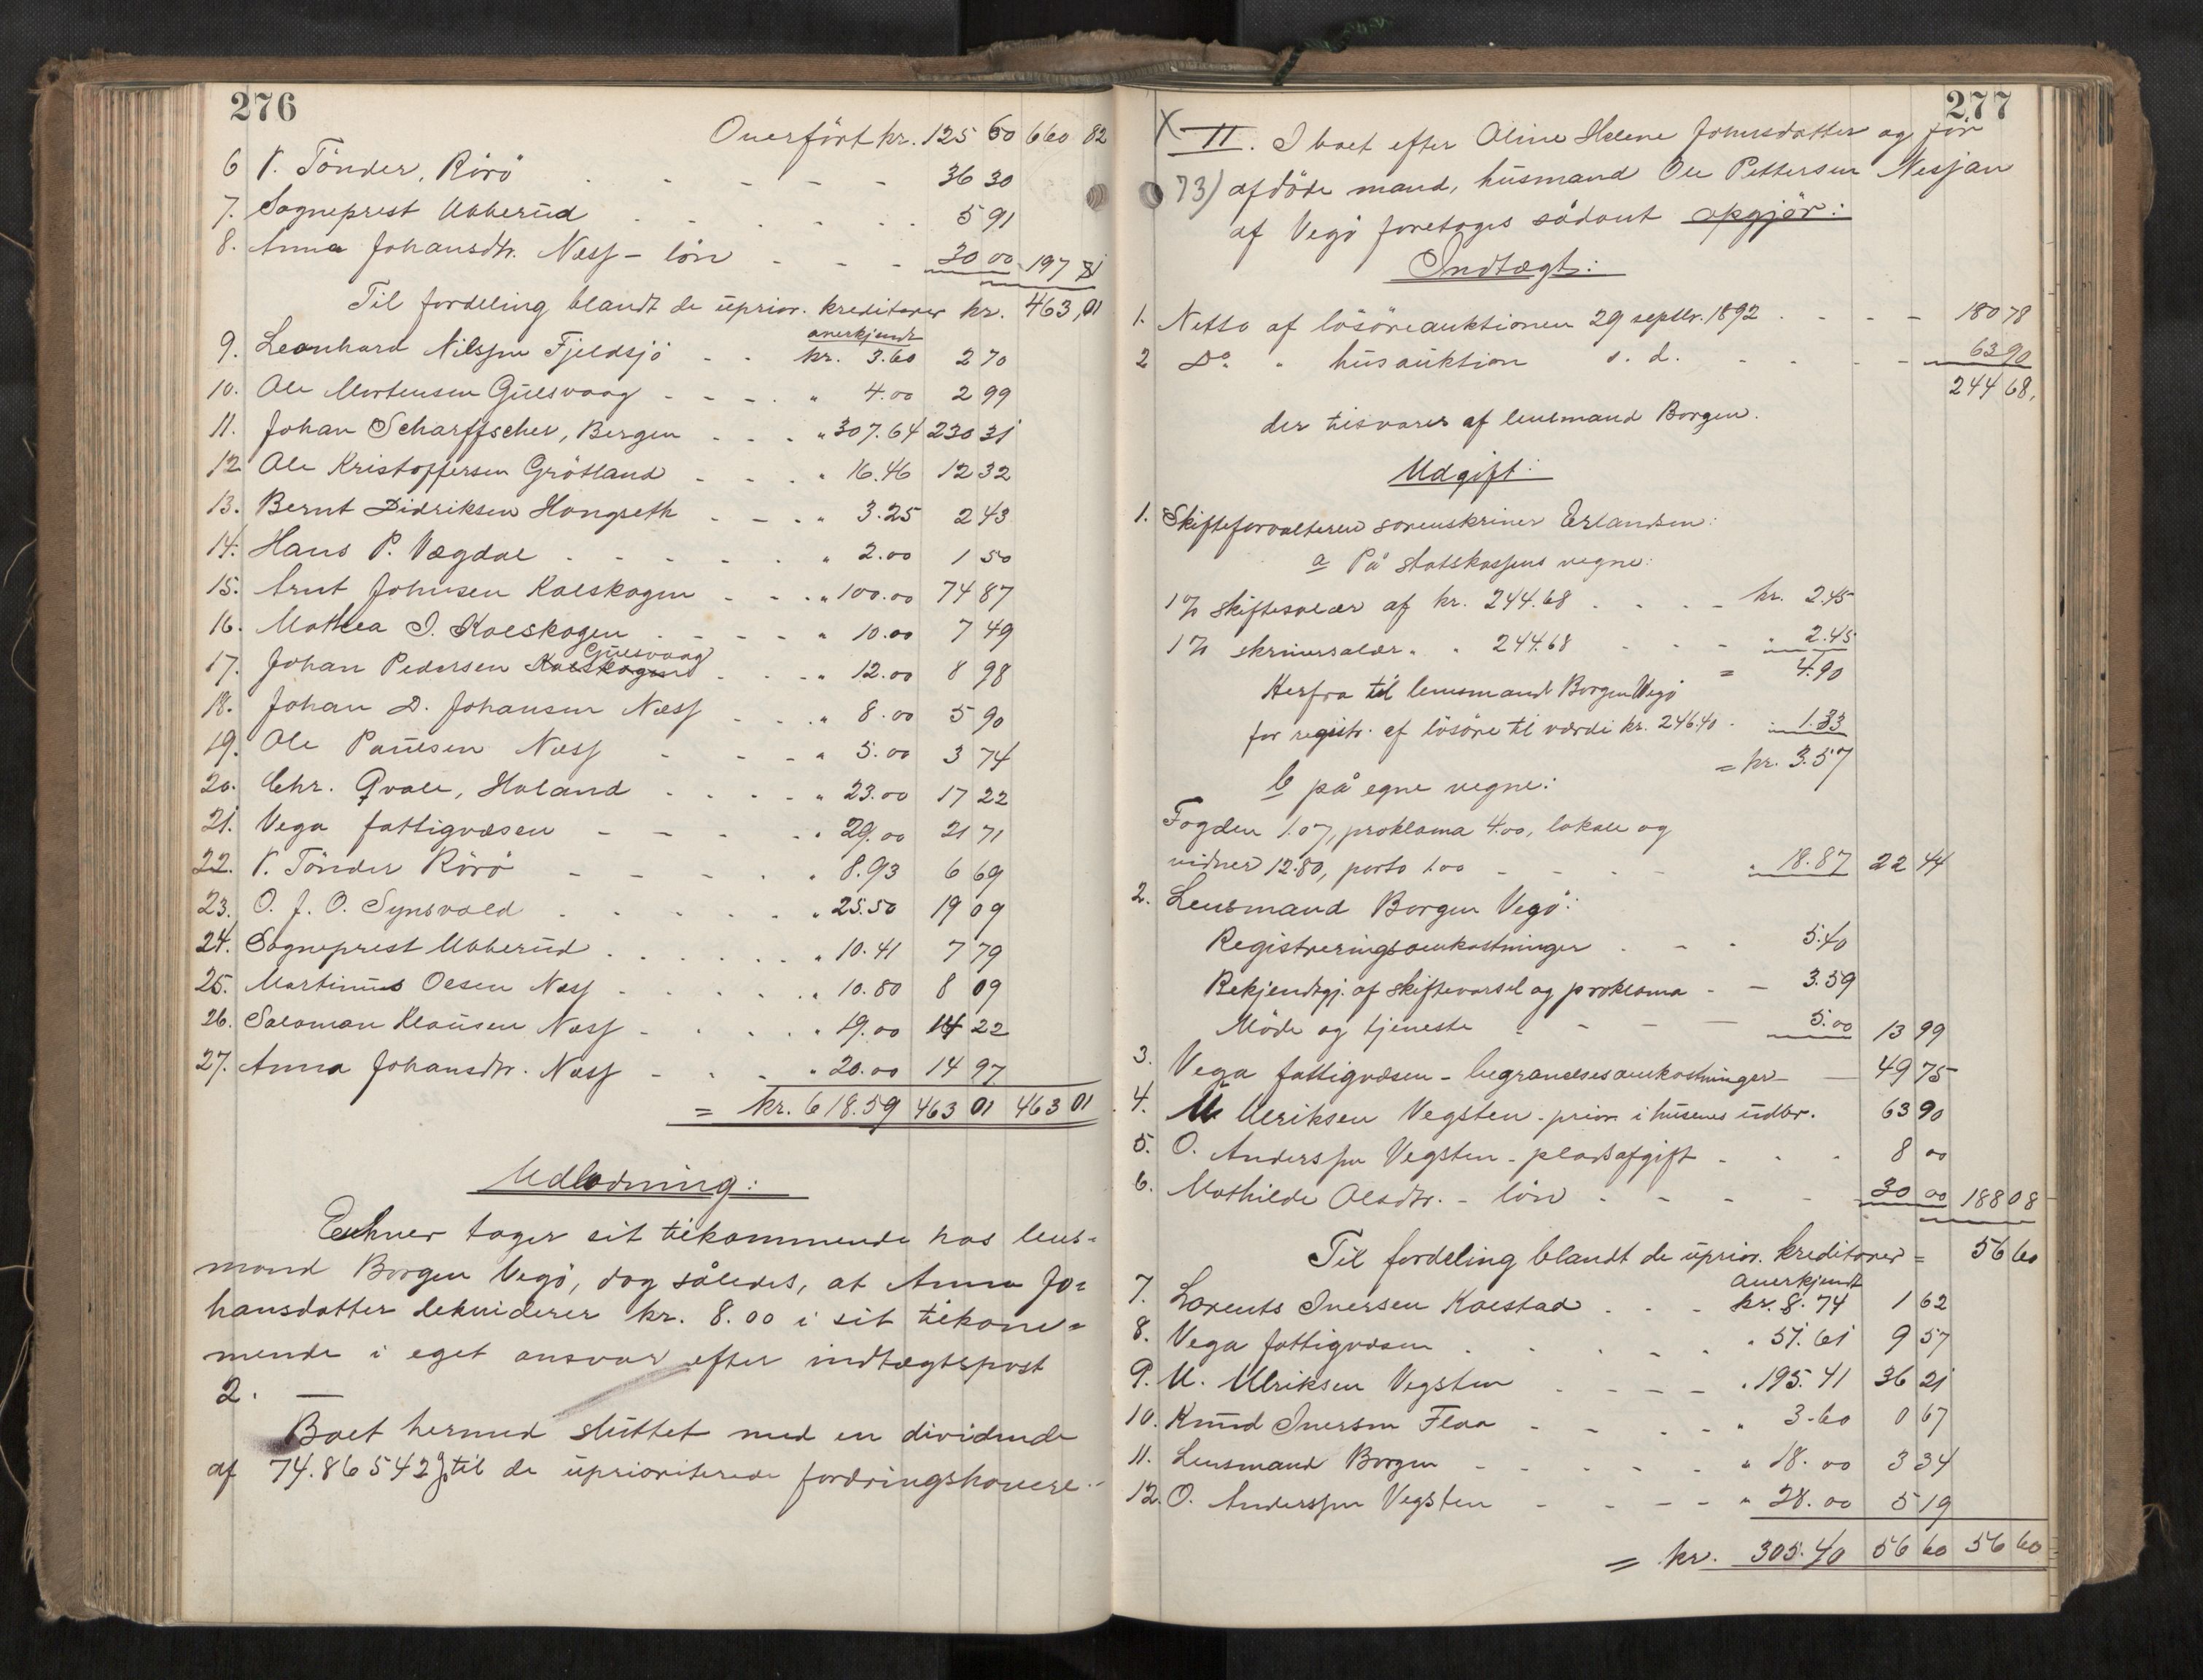 276
Overført kr. 125 60 660 82
6 P. Tønder, Rørø - - - - - 36 30
7. Sogneprest Ubberud . - . - . . 5 91
8. Anna Johansdtr. Næss - løn - - - 30 00 197 81
Til fordeling blandt de uprior. kreditorer kr. 463,01
anerkjendt
9. Leonhard Nilssen Fjeldsjø - - kr. 3.60 2 70
10. Ole Mortensen Gulsvaag - - - . " 4.00 2 99
11. Johan Scharffscher, Bergen . . . " 307.64 230 31
12 Ole Kristoffersen Grötland - - . . " 16.46 12 32
13. Bernt Didriksen Hongseth - - . . " 3.25 2 43
14. Hans P. Vægdal . - - . - . " 2.00 1 50
15. Arnt Johnsen Kalskagen - - . " 100.00 74 87
16. Mathea I. Kalskagen . - - - " 10.00 7 49
Gulsvaag
17. Johan Pedersen Kalskagen . . - " 12.00 8 98
18. Johan D. Johansen Næss - . . " 8.00 5 90
19. Ole Paulsen Næss - - - - " 5.00 3 74
20. Chr. Qvale, Holand . . . . - " 23.00 17 22
21. Vega fattigvæsen - - - . . " 29.00 21 71
22. P. Tönder Rörö - - - . . " 8.93 6 69
23. O. J. O. Synsvold . . . - . . " 25.50 19 09
24. Sogneprest Ubberud . . . . . . " 10.41 7 79
25. Martinus Olsen Næss - . . . . " 10.80 8 09
26. Salomon Klausen Næss - . . . . " 19.00 14 22
27. Anna Johansdtr. Næss - . . . " 20.00 14 97
= kr. 618.59 463 01 463 01
Udlodning:
Enhver tager sit tilkommende hos lens-
mand Borgen Vegø, dog således, at Anna Jo-
hansdatter lekviderer kr. 8.00 i sit tilkom-
mende i eget ansvar efter indtægtspost
2. —
Boet hermed sluttet med en dividende
af 74.86542 % til de uprioriterede fordringshavere.
277
X II. I boet efter Oline Helene Johnsdatter og før
73) afdöde mand, husmand Ole Pettersen Nesjan
af Vegö foretages sådant opgjör:
Indtægt:
1. Netto af lösöreauktionen 29 septbr. 1892 . - - - 180 78
2 Do. " husauktion s. d. - - . - - 63 90
244 68,
der tilsvares af lensmand Borgen.
Udgift:
1. Skifteforvalteren sorenskriver Erlandsen:
a På statskassens vegne:
1 % skiftesalær af kr. 244.68 . - . - kr. 2.45
1 % skriversalær " " 244.68 - - - " 2.45
= 4.90
Herfra til lensmand Borgen Vegö
for registr. af lösöre til værdi kr. 246.40 . " 1.33
= kr. 3.57
b på egne vegne:
Fogden 1.07, proklama 4.00, lokale og
vidner 12.80, porto 1.00 - - . - " 18.87 22 44
2. Lensmand Borgen Vegö:
Registreringsomkostninger . - - 5.40
Bekjendtgj. af skiftevarsel og proklama - - 3.59
Möde og tjeneste - - - — 5.00 13 99
3. Vega fattigvæsen - begravelsesomkostninger - — 49 75
4. M Ulriksen Vegsten - prior. i husenes udbr. 63 90
5. O. Anderssen Vegsten - pladsafgift - . . 8 00
6. Mathilde Olsdtr. - lön - - - - 30 00 188 08
Til fordeling blandt de uprior. kreditorer = 56 60
anerkjendt
7. Lorents Iversen Kalstad . . - kr. 8.74 1 62
8. Vega fattigvæsen . . . - . " 51.61 9 57
9. M. Ulriksen Vegsten . - - - " 195.41 36 21
10. Knud Iversen Floa - - . - " 3.60 0 67
11. Lensmand Borgen - - - - - " 18.00 3 34
12. O. Anderssen Vegsten - - - - " 28.00 5 19
= kr. 305.40 56 60 56 60